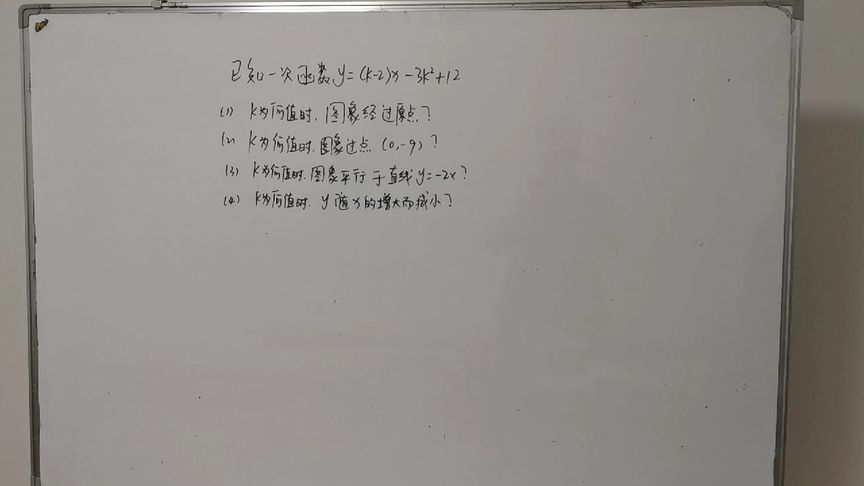 已知一次函数y=(k-2)x-3k²+12
(1) k为何值时，图象经过原点？
(2) k为何值时，图象过点(0,-9)？
(3) k为何值时，图象平行于直线y=-2x？
(4) k为何值时，y随x的增大而减小？